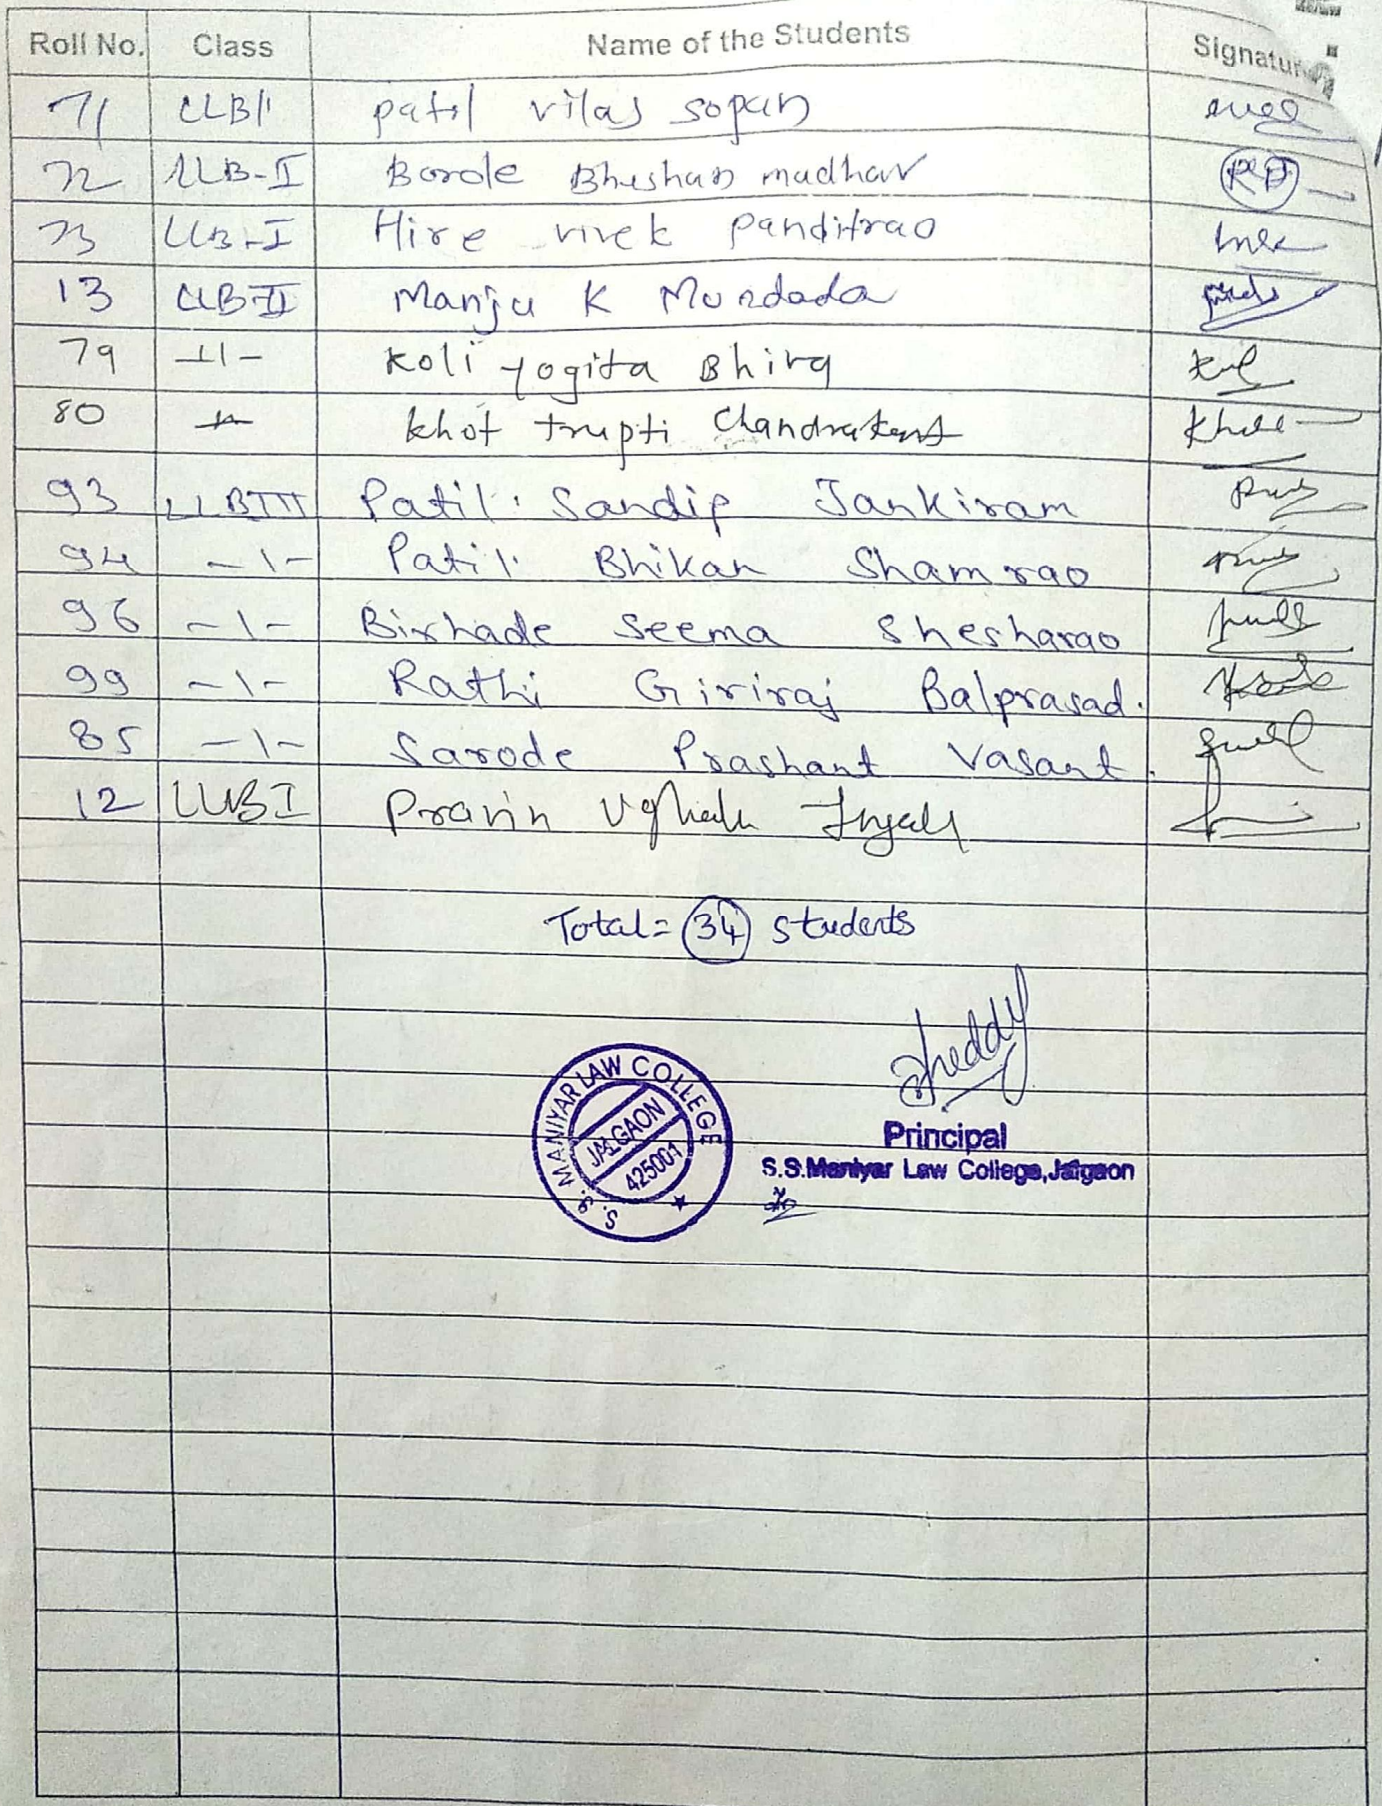 Roll No. Class Name of the Students Signature
71 LLB II patil vilas sopan
72 LLB-I Borole Bhushan madhav
73 LLB-I Hire vivek panditrao
13 LLB-II Manju K Mundada
79 -11- Koli yogita Bhira
80 -11- khot trupti Chandrakant
93 LLBIII Patil. Sandip Jankiram
94 -1- Patil. Bhikan Shamrao
96 -1- Birhade Seema Shesharao
99 -1- Rathi Giriraj Balprasad.
85 -1- Sarode Prashant Vasant.
12 LLBI Pravin
Total = 34 students
S. S. MANIYAR LAW COLLEGE
JALGAON
425001
Principal
S.S.Maniyar Law College,Jalgaon